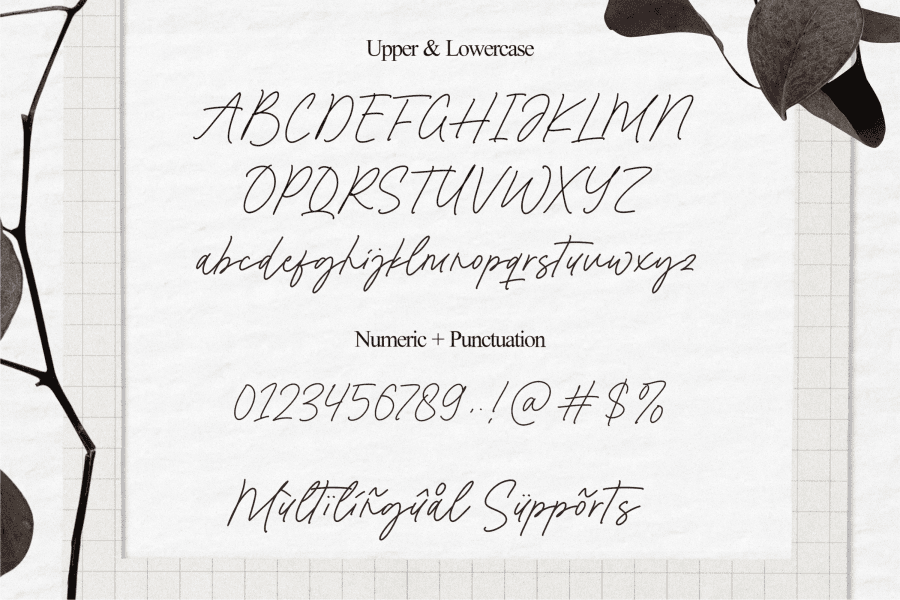 Upper & Lowercase
ABCDEFGHIJKLMN
OPQRSTUVWXYZ
abcdefghijklmnopqrstuvwxyz
Numeric + Punctuation
0123456789..!@#$%
Mùltïlíñgûål Süppõrts